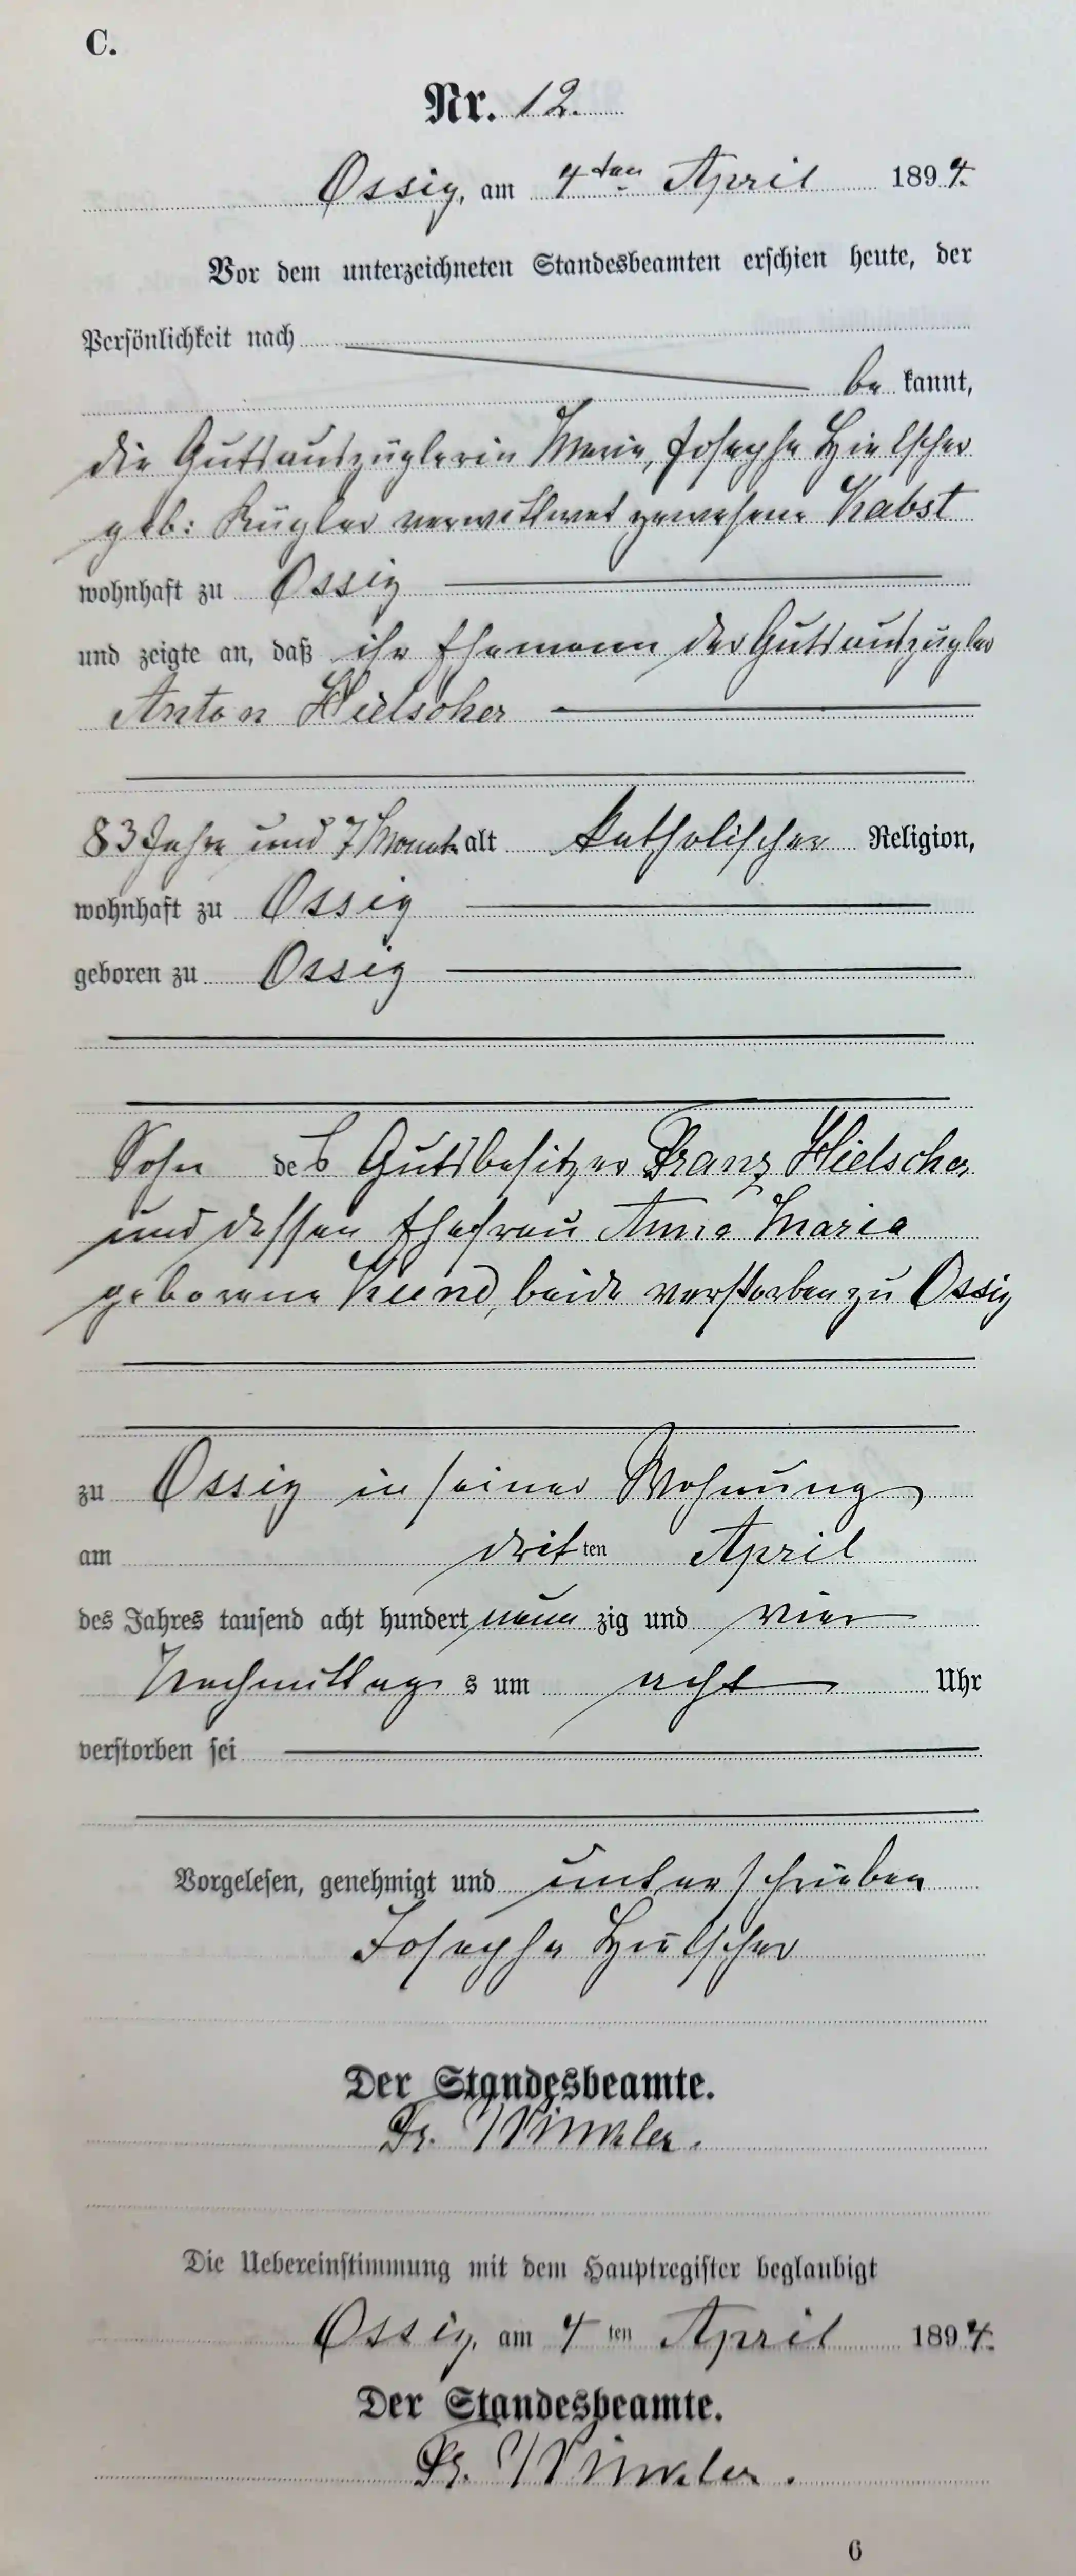 C.
Nr. 12.
Ossig, am 4ten April 1894.
Vor dem unterzeichneten Standesbeamten erschien heute, der
Persönlichkeit nach
be kannt,
die Gutsauszüglerin Marie, Josepha Hielscher
geb: Kügler verwittwet gewesene Kabst
wohnhaft zu Ossig
und zeigte an, daß ihr Ehemann der Gutsauszügler
Anton Hielscher
83 Jahre und 7 Monate alt katholischer Religion,
wohnhaft zu Ossig
geboren zu Ossig
Sohn des Gutsbesitzer Franz Hielscher
und dessen Ehefrau Anna Maria
geborene Kund, beide verstorben zu Ossig
zu Ossig in seiner Wohnung
am dritten April
des Jahres tausend acht hundert neun zig und vier
Nachmittags um acht Uhr
verstorben sei
Vorgelesen, genehmigt und unterschrieben
Josepha Hielscher
Der Standesbeamte.
Fr. Winkler.
Die Uebereinstimmung mit dem Hauptregister beglaubigt
Ossig, am 4ten April 1894.
Der Standesbeamte.
Fr. Winkler.
6